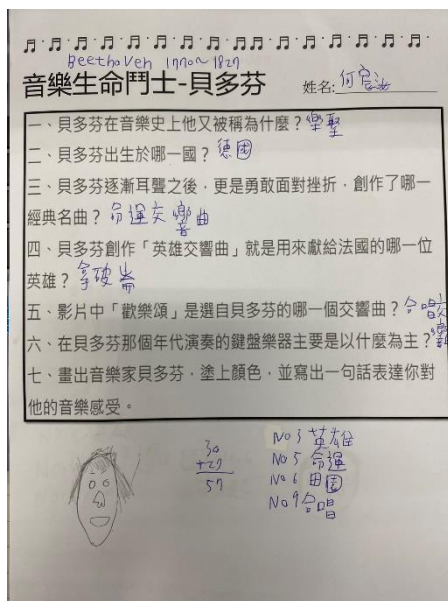 Beethoven 1770~1827
音樂生命鬥士-貝多芬 姓名:何
一、貝多芬在音樂史上他又被稱為什麼?樂聖
二、貝多芬出生於哪一國?德國
三、貝多芬逐漸耳聾之後,更是勇敢面對挫折,創作了哪一
經典名曲?命運交響曲
四、貝多芬創作「英雄交響曲」就是用來獻給法國的哪一位
英雄?拿破崙
五、影片中「歡樂頌」是選自貝多芬的哪一個交響曲?合唱交
六、在貝多芬那個年代演奏的鍵盤樂器主要是以什麼為主?
七、畫出音樂家貝多芬,塗上顏色,並寫出一句話表達你對
他的音樂感受。
30
+27
57
No 3 英雄
No 5 命運
No 6 田園
No 9 合唱